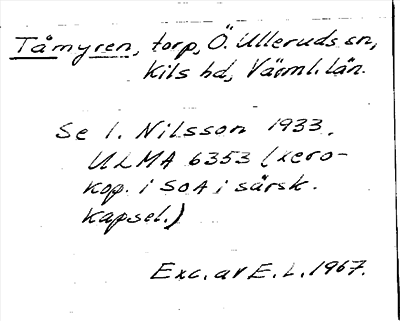 Tåmyren, torp, Ö. Ulleruds sn,
Kils hd, Värml. län.
Se I. Nilsson 1933,
ULMA 6353 (xero-
kop. i SOA i särsk.
kapsel.)
Exc. av E. L. 1967.